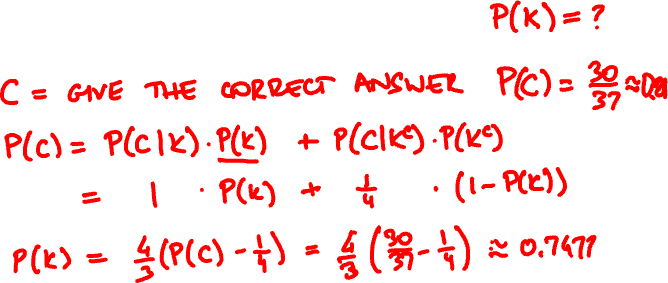 P(K) = ?
C = GIVE THE CORRECT ANSWER P(C) = 30/37 ≈ 0.81
P(C) = P(C|K) · P(K) + P(C|Kᶜ) · P(Kᶜ)
= 1 · P(K) + 1/4 · (1 - P(K))
P(K) = 4/3 (P(C) - 1/4) = 4/3 (30/37 - 1/4) ≈ 0.7477